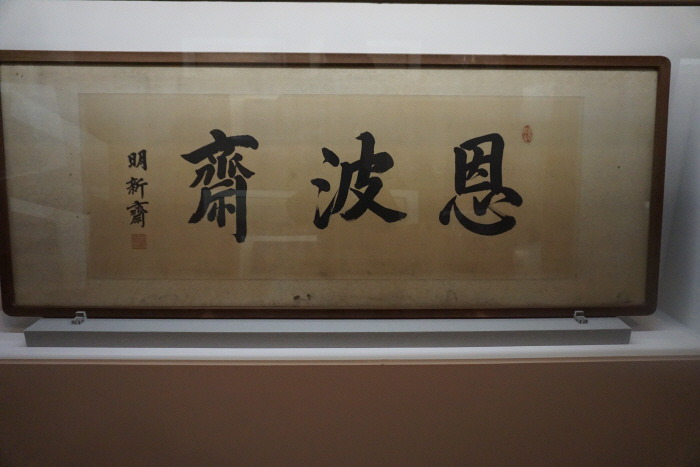 恩波齋
明新齋